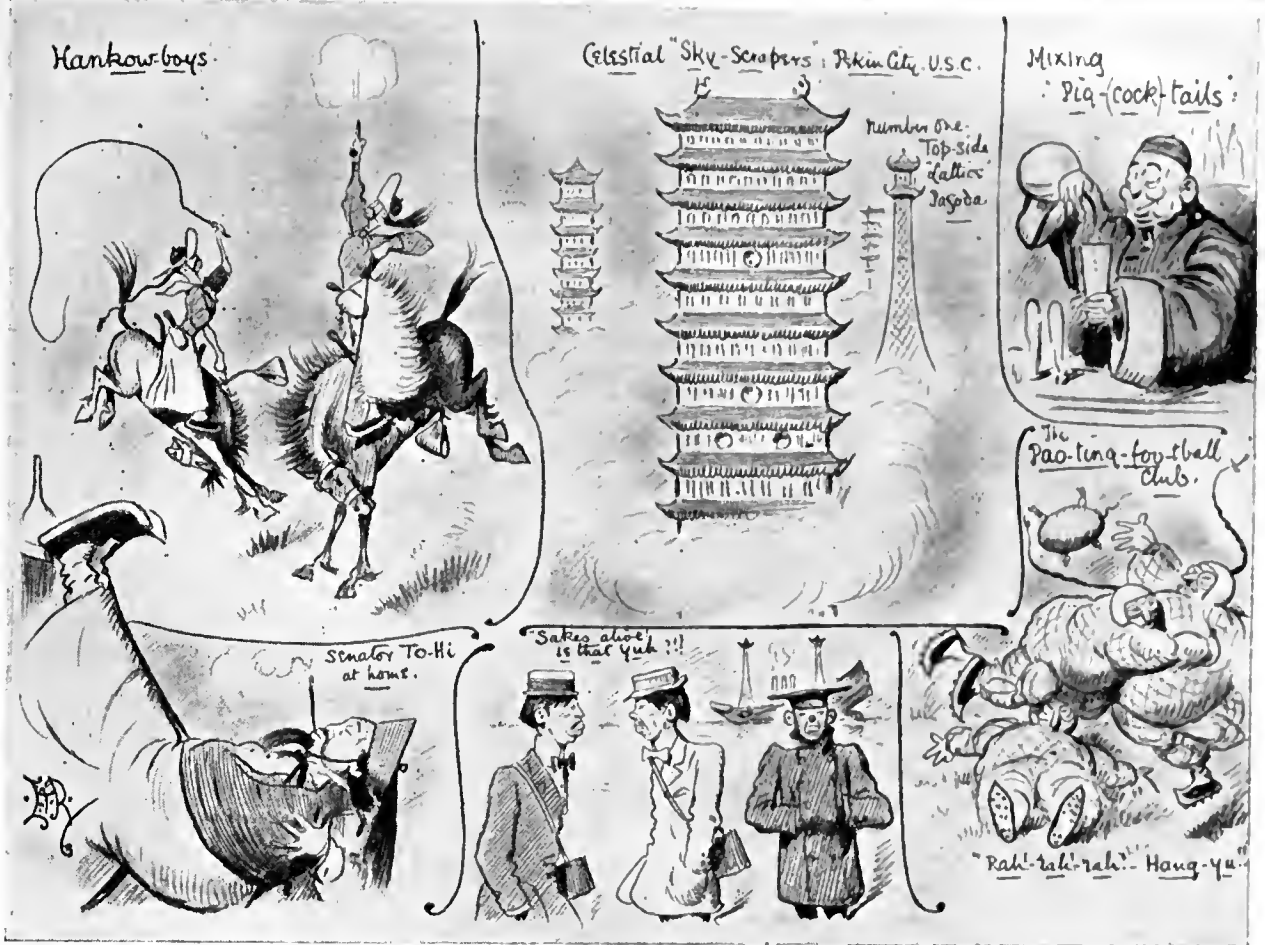 Hankow-boys.
Celestial "Sky-Scrapers": Pekin City. U.S.C.
Number one-
Top-side
Lattice
Pagoda
Mixing
"Pig-(cock)-tails:
The
Pao-ting-foo-tball
Club.
Senator To-Hi
at home.
"Sakes alive!
is that yuh?!!
"Rah!-rah!-rah!"- Hang-yu."